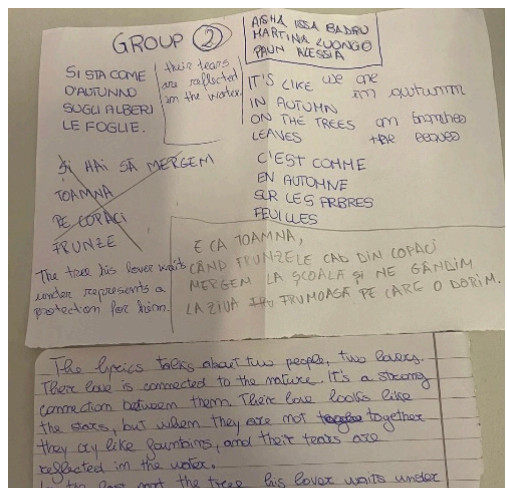 GROUP 2
AISHA ISSA BADRU
MARTINA LUONGO
PAUN ALESSIA
SI STA COME
D'AUTUNNO
SUGLI ALBERI
LE FOGLIE.
their tears
are reflected
in the water.
IT'S LIKE we are
IN AUTUMN in autumn
ON THE TREES on branches
LEAVES the
C'EST COMME
EN AUTOMNE
SUR LES ARBRES
FEUILLES
ȘI HAI SĂ MERGEM
TOAMNA
PE COPACI
FRUNZE
The tree his lover waits
under represents a
protection for him.
E CA TOAMNA,
CÂND FRUNZELE CAD DIN COPACI
MERGEM LA ȘCOALĂ ȘI NE GÂNDIM
LA ZIUA FRUMOASĂ PE CARE O DORIM.
The lyrics talks about two people, two lovers.
Their love is connected to the nature. It's a strong
connection between them. Their love looks like
the stars, but when they are not together
they cry like fountains, and their tears are
reflected in the water.
the tree his lover waits under